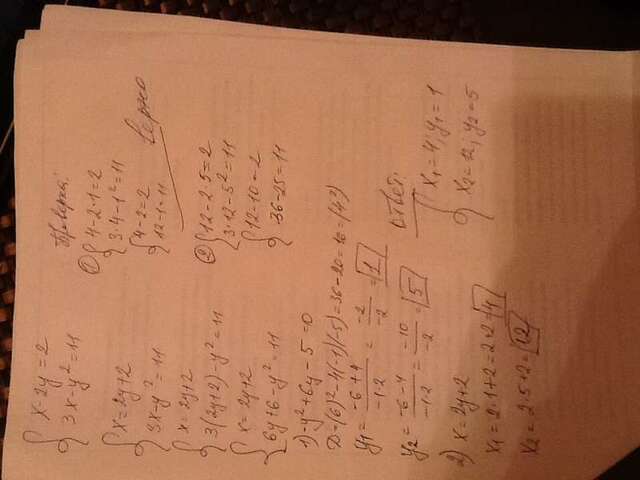 { x-2y=2
3x-y²=11
{ x=2y+2
3x-y²=11
{ x=2y+2
3(2y+2)-y²=11
{ x=2y+2
6y+6-y²=11
1) -y²+6y-5=0
D=(6)²-4(-1)(-5)=36-20=16=(4²)
y₁= -6+4/-1·2 = -2/-2 = 1
y₂= -6-4/-1·2 = -10/-2 = 5
2) x=2y+2
x₁=2·1+2=2+2=4
x₂=2·5+2=12
Проверка:
① { 4-2·1=2
3·4-1²=11
{ 4-2=2
12-1=11
верно
② { 12-2·5=2
3·12-5²=11
{ 12-10=2
36-25=11
Ответ:
{ x₁=4; y₁=1
x₂=12; y₂=5